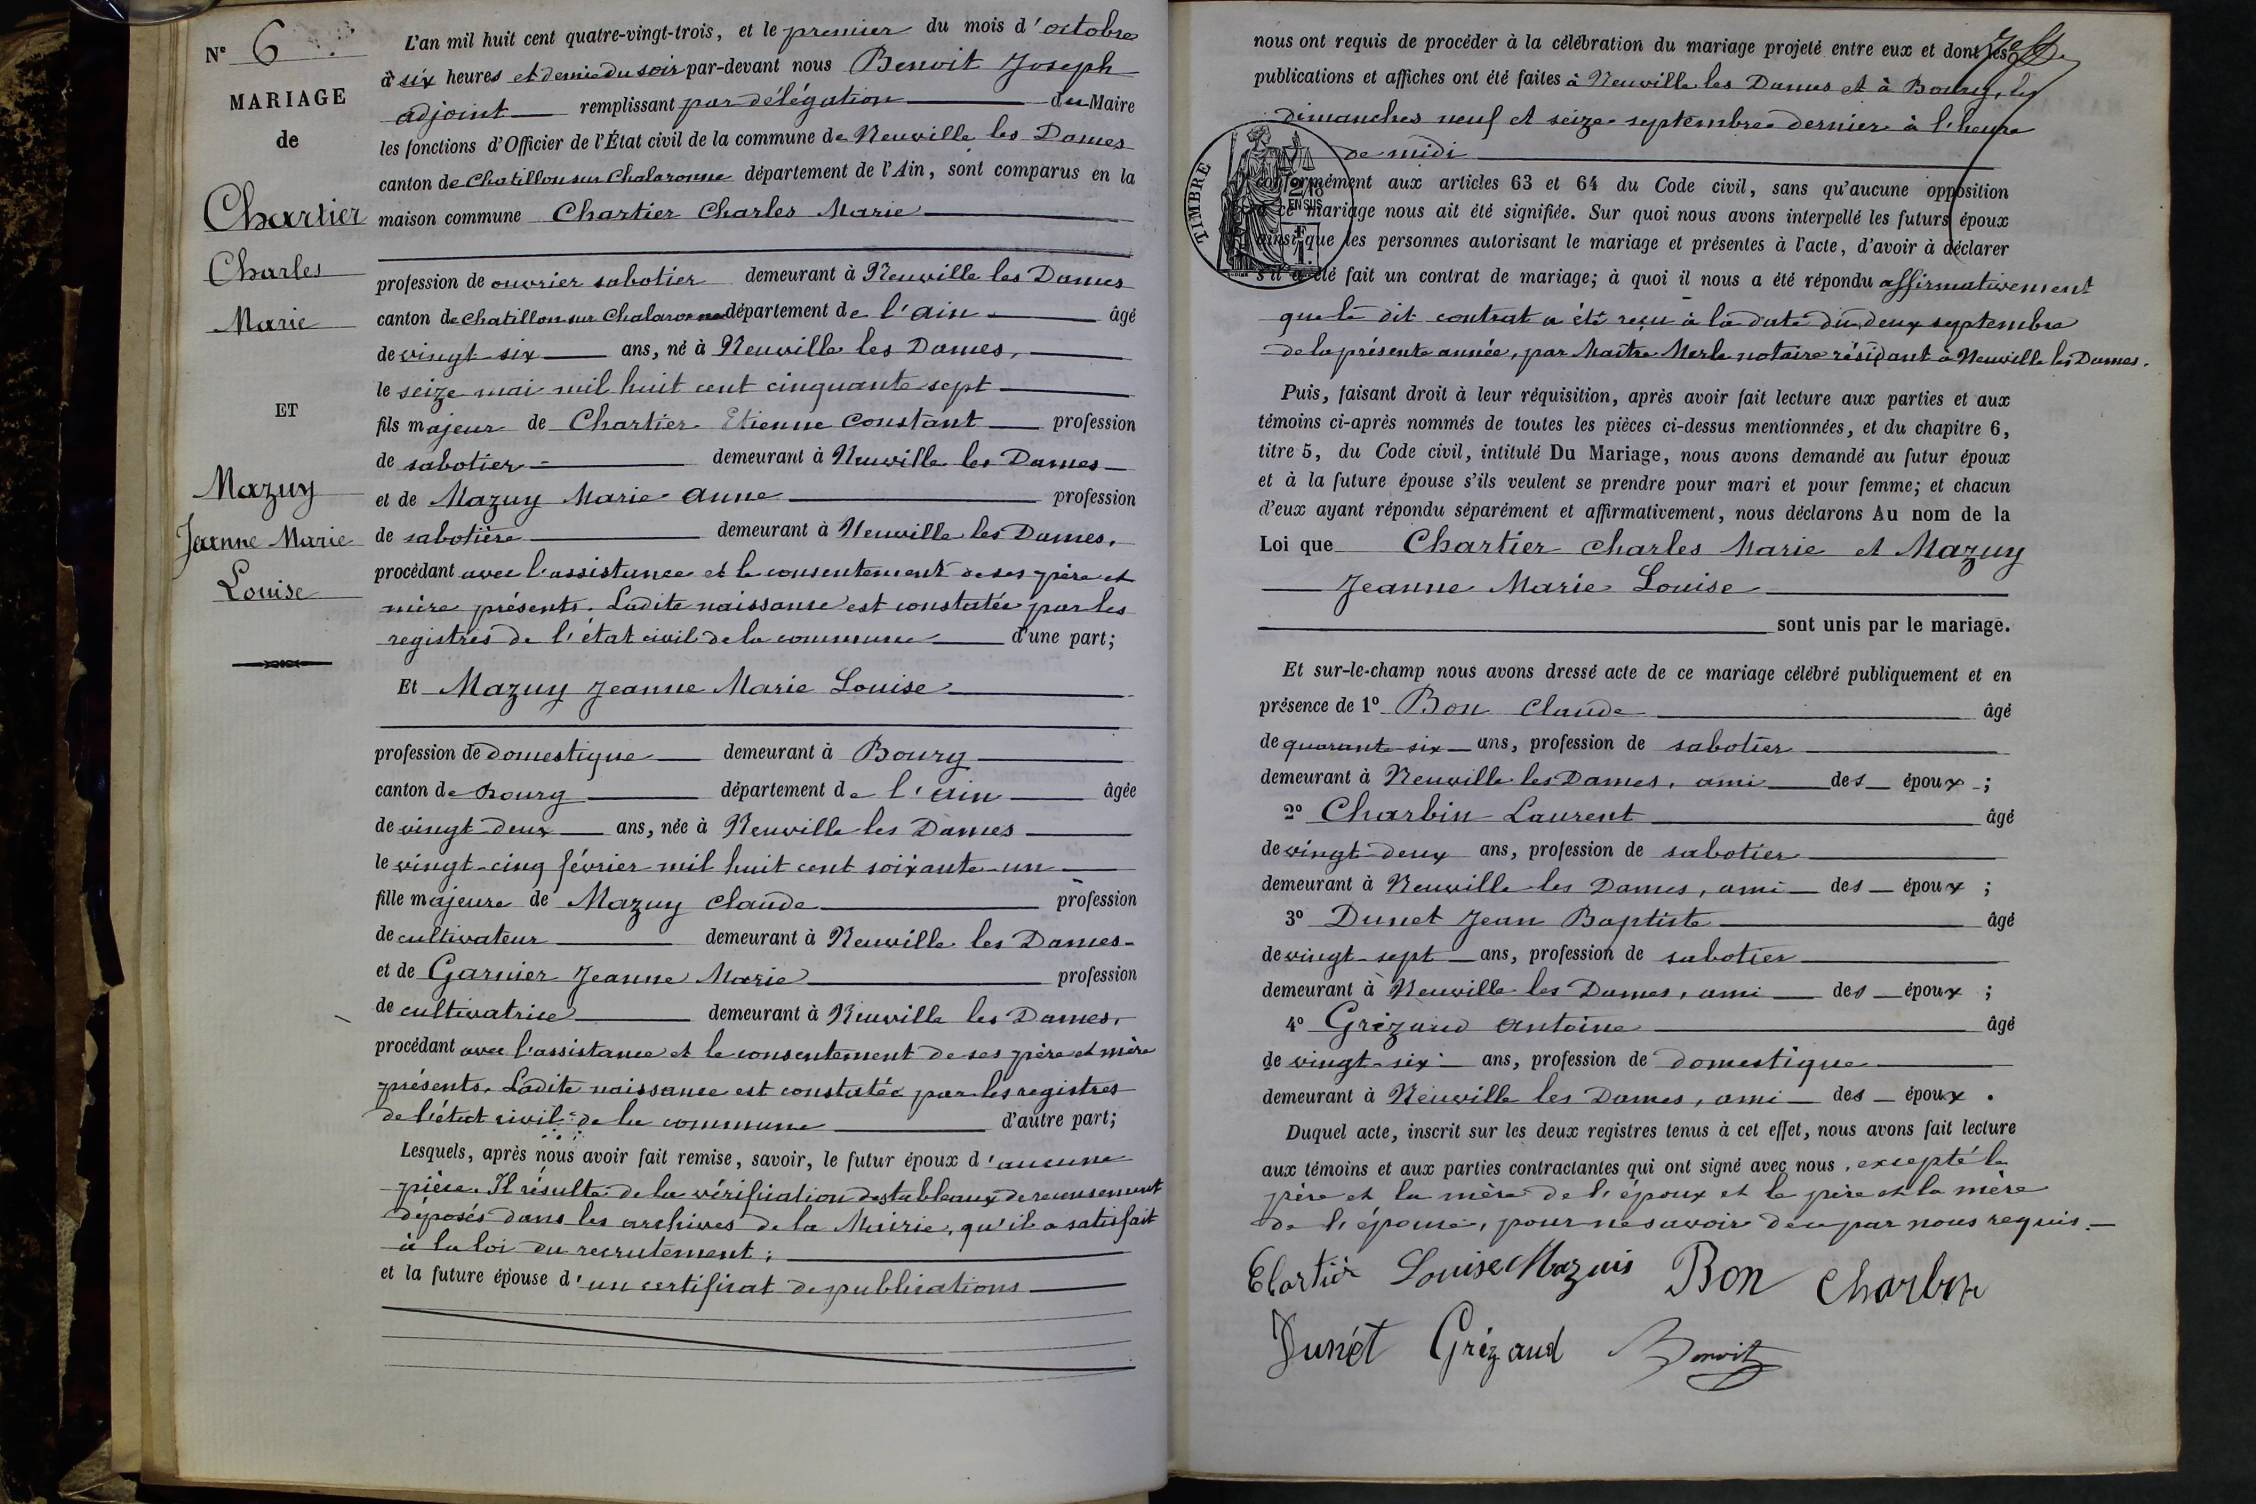 N° 6
MARIAGE
de
Chartier
Charles
Marie
ET
Mazuy
Jeanne Marie
Louise
L'an mil huit cent quatre-vingt-trois, et le premier du mois d'octobre
à six heures et demie du soir par-devant nous Benoit Joseph
adjoint remplissant par délégation du Maire
les fonctions d'Officier de l'État civil de la commune de Neuville les Dames
canton de Chatillon sur Chalaronne département de l'Ain, sont comparus en la
maison commune Chartier Charles Marie
profession de ouvrier sabotier demeurant à Neuville les Dames
canton de Chatillon sur Chalaronne département de l'ain âgé
de vingt-six ans, né à Neuville les Dames,
le seize mai mil huit cent cinquante sept
fils majeur de Chartier Etienne Constant profession
de sabotier demeurant à Neuville les Dames
et de Mazuy Marie-Anne profession
de sabotière demeurant à Neuville les Dames.
procédant avec l'assistance et le consentement de ses père et
mère présents. Ladite naissance est constatée par les
registres de l'état civil de la commune d'une part;
Et Mazuy Jeanne Marie Louise
profession de domestique demeurant à Bourg
canton de Bourg département de l'ain âgée
de vingt-deux ans, née à Neuville les Dames
le vingt-cinq février mil huit cent soixante-un
fille majeure de Mazuy Claude profession
de cultivateur demeurant à Neuville les Dames
et de Garnier Jeanne Marie profession
de cultivatrice demeurant à Neuville les Dames.
procédant avec l'assistance et le consentement de ses père et mère
présents. Ladite naissance est constatée par les registres
de l'état civil de la commune d'autre part;
Lesquels, après nous avoir fait remise, savoir, le futur époux d'aucune
pièce. Il résulte de la vérification des tableaux de recensement
déposés dans les archives de la Mairie, qu'il a satisfait
à la loi du recrutement;
et la future épouse d'un certificat de publications
nous ont requis de procéder à la célébration du mariage projeté entre eux et dont les
publications et affiches ont été faites à Neuville les Dames et à Bourg, les
dimanches neuf et seize septembre dernier à l'heure
de midi
TIMBRE
conformément aux articles 63 et 64 du Code civil, sans qu'aucune opposition
à ce mariage nous ait été signifiée. Sur quoi nous avons interpellé les futurs époux
ainsi que les personnes autorisant le mariage et présentes à l'acte, d'avoir à déclarer
s'il a été fait un contrat de mariage; à quoi il nous a été répondu affirmativement
que le dit contrat a été reçu à la date du deux septembre
de la présente année, par Maître Merle notaire résidant à Neuville les Dames.
Puis, faisant droit à leur réquisition, après avoir fait lecture aux parties et aux
témoins ci-après nommés de toutes les pièces ci-dessus mentionnées, et du chapitre 6,
titre 5, du Code civil, intitulé Du Mariage, nous avons demandé au futur époux
et à la future épouse s'ils veulent se prendre pour mari et pour femme; et chacun
d'eux ayant répondu séparément et affirmativement, nous déclarons Au nom de la
Loi que Chartier Charles Marie et Mazuy
Jeanne Marie Louise
sont unis par le mariage.
Et sur-le-champ nous avons dressé acte de ce mariage célébré publiquement et en
présence de 1° Bon Claude âgé
de quarante-six ans, profession de sabotier
demeurant à Neuville les Dames, ami des époux;
2° Charbin Laurent âgé
de vingt-deux ans, profession de sabotier
demeurant à Neuville les Dames, ami des époux;
3° Dunet Jean Baptiste âgé
de vingt-sept ans, profession de sabotier
demeurant à Neuville les Dames, ami des époux;
4° Grézaud Antoine âgé
de vingt-six ans, profession de domestique
demeurant à Neuville les Dames, ami des époux.
Duquel acte, inscrit sur les deux registres tenus à cet effet, nous avons fait lecture
aux témoins et aux parties contractantes qui ont signé avec nous, excepté le
père et la mère de l'époux et le père et la mère
de l'épouse, pour ne savoir de ce par nous requis.
Chartier Louise Mazuis Bon Charbin
Dunet Grézaud Benoit